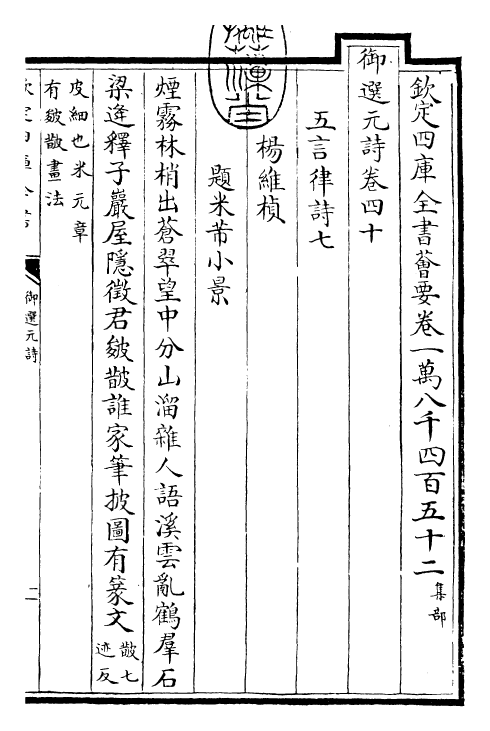 欽定四庫全書薈要卷一萬八千四百五十二集部
御選元詩卷四十
五言律詩七
楊維楨
題米芾小景
煙霧林梢出蒼翠望中分山溜雜人語溪雲亂鶴羣石
梁逢釋子巖屋隱徵君皴皵誰家筆披圖有篆文皵七迹反
皮細也米元章有皴皵畫法
御選元詩